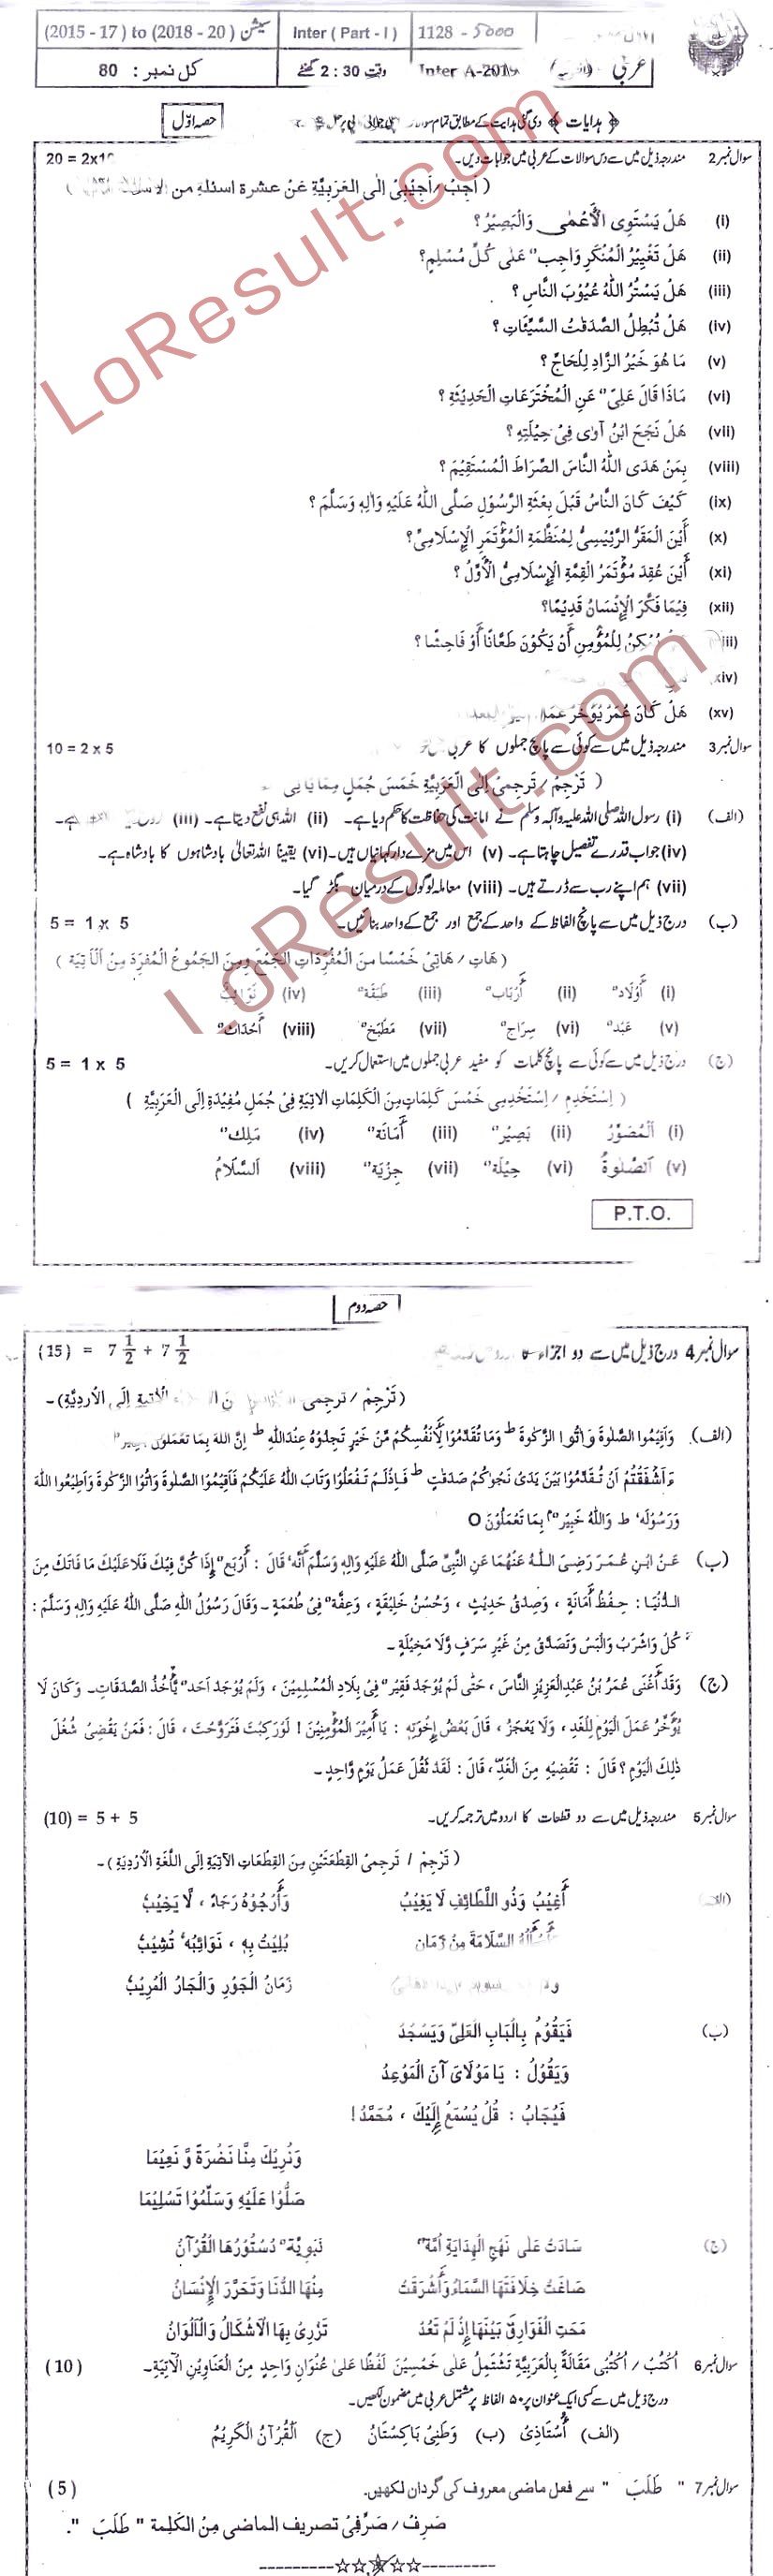 سیشن (2015 - 17) to (2018 - 20) Inter ( Part - I ) 1128 - 5000
عربی Inter A-2019 وقت 2 : 30 گھنٹے کل نمبر : 80
﴿ ہدایات ﴾ دی گئی ہدایت کے مطابق تمام حصہ اوّل
سوال نمبر 2 مندرجہ ذیل میں سے دس سوالات کے عربی میں جوابات دیں۔ 20 = 2x10
( اَجِبْ / اَجِيْبِيْ اِلَى الْعَرَبِيَّةِ عَنْ عشرة اسئلة من
(i) هَلْ يَسْتَوِى الْأَعْمٰى وَالْبَصِيْرُ ؟
(ii) هَلْ تَغْيِيْرُ الْمُنْكَرِ وَاجِب" عَلٰى كُلِّ مُسْلِمٍ؟
(iii) هَلْ يَسْتُرُ اللّٰهُ عُيُوْبَ النَّاسِ ؟
(iv) هَلْ تُبْطِلُ الصَّدَقٰتُ السَّيِّئَاتِ ؟
(v) مَا هُوَ خَيْرُ الزَّادِ لِلْحَاجِّ ؟
(vi) مَاذَا قَالَ عَلِىّ" عَنِ الْمُخْتَرَعَاتِ الْحَدِيْثَةِ ؟
(vii) هَلْ نَجَحَ ابْنُ آوٰى فِىْ حِيْلَتِهٖ ؟
(viii) بِمَنْ هَدَى اللّٰهُ النَّاسَ الصِّرَاطَ الْمُسْتَقِيْمَ ؟
(ix) كَيْفَ كَانَ النَّاسُ قَبْلَ بِعْثَةِ الرَّسُوْلِ صَلَّى اللّٰهُ عَلَيْهِ وَاٰلِهٖ وَسَلَّمَ ؟
(x) أَيْنَ الْمَقَرُّ الرَّئِيْسِىُّ لِمُنَظَّمَةِ الْمُؤْتَمَرِ الْإِسْلَامِىِّ؟
(xi) أَيْنَ عُقِدَ مُؤْتَمَرُ الْقِمَّةِ الْإِسْلَامِىُّ الْأَوَّلُ ؟
(xii) فِيْمَا فَكَّرَ الْإِنْسَانُ قَدِيْمًا؟
يُمْكِنُ لِلْمُؤْمِنِ أَنْ يَكُوْنَ طَعَّانًا أَوْ فَاحِشًا ؟
(xiv)
(xv) هَلْ كَانَ عُمَرُ يُؤَخِّرُ عَمَلَ
سوال نمبر 3 مندرجہ ذیل میں سے کوئی سے پانچ جملوں کا عربی 10 = 2 x 5
( تَرْجِمْ / تَرْجِمِىْ اِلَى الْعَرَبِيَّةِ خَمْسَ جُمَلٍ مِمَّا يَأْتِى
(الف) (i) رسول اللہ صلی اللہ علیہ وآلہٖ وسلم نے امانت کی حفاظت کا حکم دیا ہے۔ (ii) اللہ ہی نفع دیتا ہے۔ (iii) ہے۔
(iv) جواب قدرے تفصیل چاہتا ہے۔ (v) اس میں مزے دار کہانیاں ہیں۔ (vi) یقیناً اللہ تعالیٰ بادشاہوں کا بادشاہ ہے۔
(vii) ہم اپنے رب سے ڈرتے ہیں۔ (viii) معاملہ لوگوں کے درمیان بگڑ گیا۔
(ب) درج ذیل میں سے پانچ الفاظ کے واحد کے جمع اور جمع کے واحد بنائیں۔ 5 = 1 x 5
( هَاتِ / هَاتِىْ خَمْسًا مِنَ الْمُفْرَدَاتِ الْجَمْعَ وَمِنَ الْجَمُوْعِ الْمُفْرَدَ مِنْ الْاٰتِيَة )
(i) أَوْلَاد" (ii) أَرْبَاب" (iii) طَبَقَة" (iv) نَوَائِبُ
(v) عَبْد" (vi) سِرَاج" (vii) مَطْبَخ" (viii) أَحْدَاث"
(ج) درج ذیل میں سے کوئی سے پانچ کلمات کو مفید عربی جملوں میں استعمال کریں۔ 5 = 1 x 5
( اِسْتَخْدِمْ / اِسْتَخْدِمِى خَمْسَ كَلِمَاتٍ مِنَ الْكَلِمَاتِ الْاٰتِيَةِ فِىْ جُمَلٍ مُفِيْدَةٍ اِلَى الْعَرَبِيَّةِ )
(i) اَلْمُصَوِّرُ (ii) بَصِيْر" (iii) أَمَانَة" (iv) مَلِك"
(v) اَلصَّلٰوةُ (vi) حِيْلَة" (vii) جِزْيَة" (viii) اَلسَّلَامُ
P.T.O.
حصہ دوم
سوال نمبر 4 درج ذیل میں سے دو اجزاء کا (15) = 7 1/2 + 7 1/2
(تَرْجِمْ / ترجمى الْاٰتية اِلَى الْأُرْدِيَّةِ)۔
(الف) وَاَقِيْمُوا الصَّلٰوةَ وَاٰتُوا الزَّكٰوةَ ط وَمَا تُقَدِّمُوْا لِأَنْفُسِكُمْ مِّنْ خَيْرٍ تَجِدُوْهُ عِنْدَ اللّٰهِ ط اِنَّ اللّٰهَ بِمَا تَعْمَلُوْنَ بَصِيْر"
ءَاَشْفَقْتُمْ اَنْ تُقَدِّمُوْا بَيْنَ يَدَىْ نَجْوٰكُمْ صَدَقٰتٍ ط فَاِذْ لَمْ تَفْعَلُوْا وَتَابَ اللّٰهُ عَلَيْكُمْ فَاَقِيْمُوا الصَّلٰوةَ وَاٰتُوا الزَّكٰوةَ وَاَطِيْعُوا اللّٰهَ
وَرَسُوْلَهٗ ط وَاللّٰهُ خَبِيْر" بِمَا تَعْمَلُوْنَ O
(ب) عَنْ ابْنِ عُمَرَ رَضِىَ اللّٰهُ عَنْهُمَا عَنِ النَّبِىِّ صَلَّى اللّٰهُ عَلَيْهِ وَاٰلِهٖ وَسَلَّمَ أَنَّهٗ قَالَ : أَرْبَع" إِذَا كُنَّ فِيْكَ فَلَا عَلَيْكَ مَا فَاتَكَ مِنَ
الدُّنْيَا : حِفْظُ أَمَانَةٍ ، وَصِدْقُ حَدِيْثٍ ، وَحُسْنُ خَلِيْقَةٍ ، وَعِفَّة" فِىْ طُعْمَةٍ ۔ وَقَالَ رَسُوْلُ اللّٰهِ صَلَّى اللّٰهُ عَلَيْهِ وَاٰلِهٖ وَسَلَّمَ :
كُلْ وَاشْرَبْ وَالْبَسْ وَتَصَدَّقْ مِنْ غَيْرِ سَرَفٍ وَّلَا مَخِيْلَةٍ ۔
(ج) وَقَدْ أَغْنٰى عُمَرُ بْنُ عَبْدِ الْعَزِيْزِ النَّاسَ ، حَتّٰى لَمْ يُوْجَدْ فَقِيْر" فِىْ بِلَادِ الْمُسْلِمِيْنَ ، وَلَمْ يُوْجَدْ اَحَد" يَّأْخُذُ الصَّدَقَاتِ۔ وَكَانَ لَا
يُؤَخِّرُ عَمَلَ الْيَوْمِ لِلْغَدِ ، وَلَا يَعْجَزُ ، قَالَ بَعْضُ إِخْوَتِهٖ : يَا أَمِيْرَ الْمُؤْمِنِيْنَ ! لَوْ رَكِبْتَ فَتَرَوَّحْتَ ، قَالَ : فَمَنْ يَقْضِىْ شُغْلَ
ذٰلِكَ الْيَوْمِ ؟ قَالَ : تَقْضِيْهِ مِنَ الْغَدِّ ، قَالَ : لَقَدْ ثَقُلَ عَمَلُ يَوْمٍ وَّاحِدٍ ۔
سوال نمبر 5 مندرجہ ذیل میں سے دو قطعات کا اردو میں ترجمہ کریں۔ (10) = 5 + 5
( تَرْجِمْ / تَرجِمِىْ القِطْعَتَيْنِ مِنَ القِطْعَاتِ الآتِيَةِ اِلَى اللُّغَةِ الْاُرْدِيَةِ )۔
(الف) أَغِيْبُ وَذُو اللَّطَائِفِ لَا يَغِيْبُ وَأَرْجُوْهُ رَجَاءً ، لَّا يَخِيْبُ
وَأَسْأَلُهُ السَّلَامَةَ مِنْ زَمَان بُلِيْتُ بِهٖ ، نَوَائِبُهٗ تُشِيْبُ
زَمَانُ الْجَوْرِ وَالْجَارُ الْمُرِيْبُ
(ب) فَيَقُوْمُ بِالْبَابِ الْعَلِىِّ وَيَسْجُدُ
وَيَقُوْلُ : يَا مَوْلَاىَ آنَ الْمَوْعِدُ
فَيُجَابُ : قُلْ يُسْمَعْ إِلَيْكَ ، مُحَمَّدُ !
وَنُرِيْكَ مِنَّا نَضْرَةً وَّ نَعِيْمَا
صَلُّوْا عَلَيْهِ وَسَلِّمُوْا تَسْلِيْمَا
(ج) سَادَتْ عَلٰى نَهْجِ الْهِدَايَةِ اُمَّة" نَبَوِيَّة" دُسْتُوْرُهَا الْقُرْآنُ
صَاغَتْ خِلَافَتَهَا السَّمَاءُ وَأَشْرَقَتْ مِنْهَا الدُّنَا وَتَحَرَّرَ الْإِنْسَانُ
مَحَتِ الْفَوَارِقَ بَيْنَهَا إِذْ لَمْ تَعُدْ تَزْرِىْ بِهَا الْاَشْكَالُ وَالْأَلْوَانُ
سوال نمبر 6 اُكْتُبْ / اُكْتُبِى مَقَالَةً بِالْعَرَبِيَّةِ تَشْتَمِلُ عَلٰى خَمْسِيْنَ لَفْظًا عَلىٰ عُنْوَانٍ وَاحِدٍ مِنَ الْعَنَاوِيْنِ الْاٰتِيَةِ۔ (10)
درج ذیل میں سے کسی ایک عنوان پر ۵۰ الفاظ پر مشتمل عربی میں مضمون لکھیں۔
(الف) أُسْتَاذِىْ (ب) وَطَنِىْ بَاكِسْتَانُ (ج) اَلْقُرْآنُ الْكَرِيْمُ
سوال نمبر 7 " طَلَبَ " سے فعل ماضی معروف کی گردان لکھیں۔ (5)
صَرِفْ / صَرِّفِىْ تصريف الماضى مِنْ الكَلِمة " طَلَبَ ".
---------☆☆☆☆☆---------
LoResult.com
LoResult.com